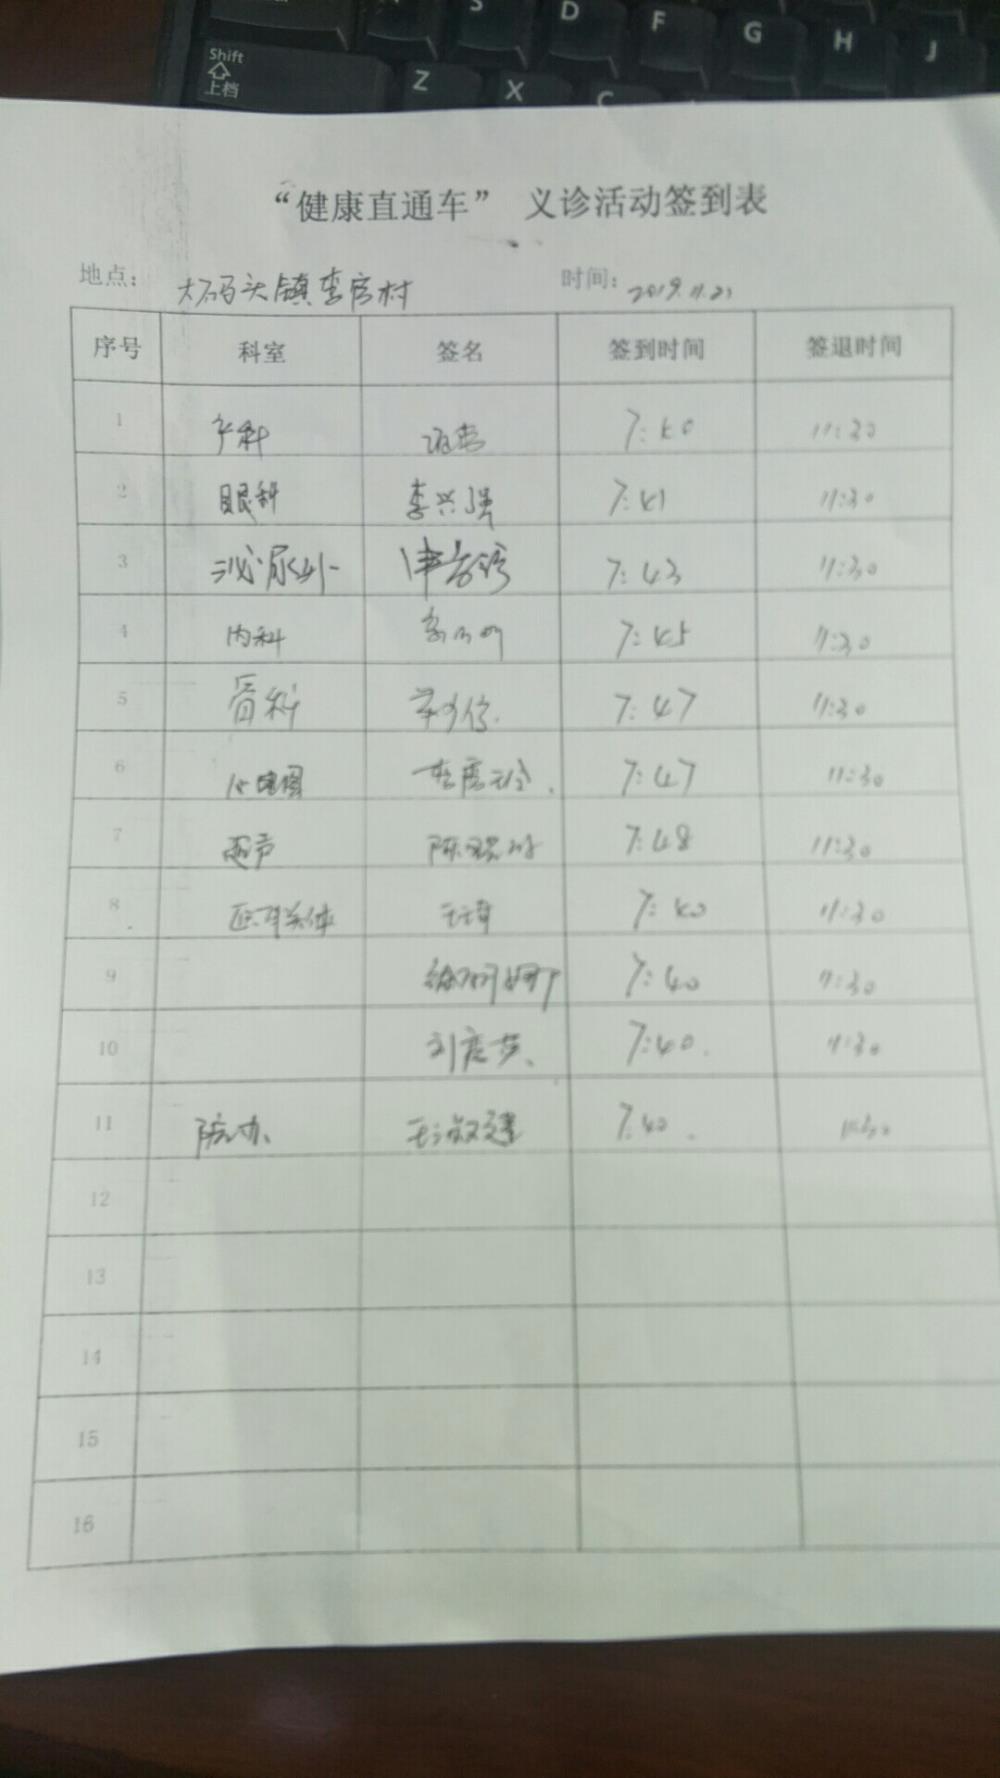 S D F G H J
Shift
上档
Z X C
“健康直通车” 义诊活动签到表
地点: 大码头镇李官村 时间: 2019.11.21
序号 科室 签名 签到时间 签退时间
1 产科 7:40 11:30
2 眼科 李兴强 7:41 11:30
3 泌尿外 7:43 11:30
4 内科 7:45 11:30
5 骨科 7:47 11:30
6 心电图 7:47 11:30
7 超声 7:48 11:30
8 医联体 7:40 11:30
9 7:40 11:30
10 刘庆芬 7:40 11:30
11 院办 7:40 11:30
12
13
14
15
16